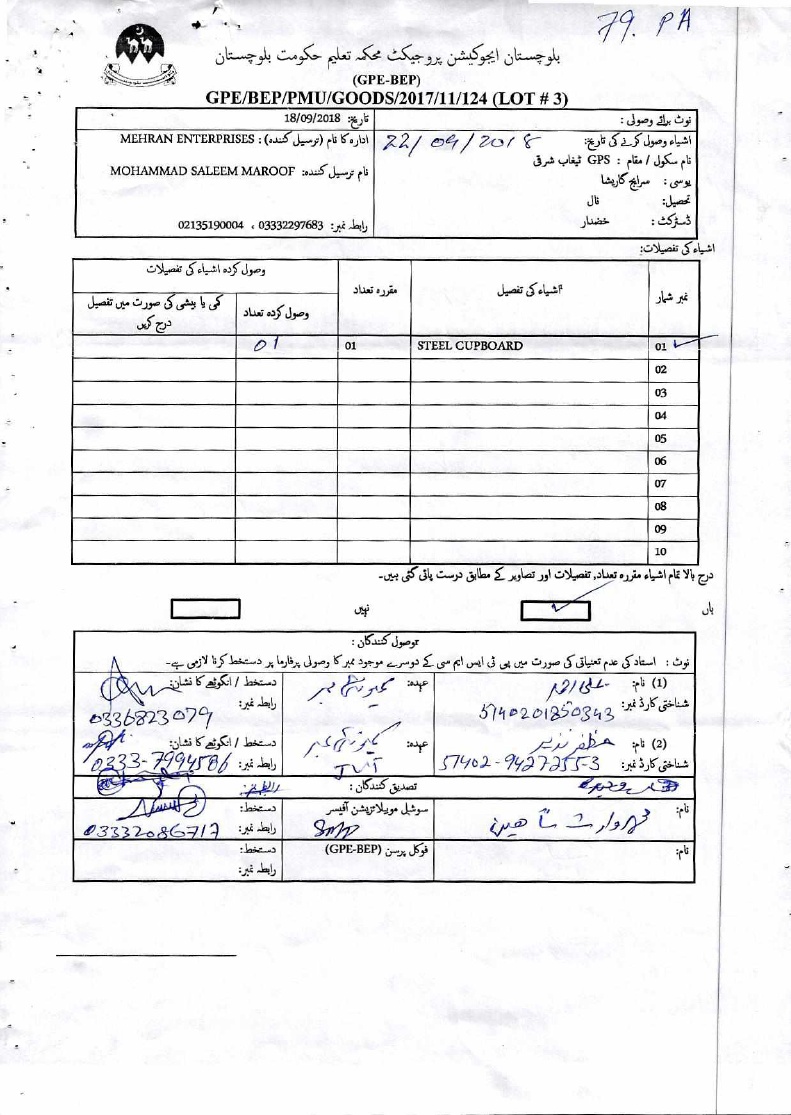 79. PA
بلوچستان ایجوکیشن پروجیکٹ محکمہ تعلیم حکومت بلوچستان
(GPE-BEP)
GPE/BEP/PMU/GOODS/2017/11/124 (LOT # 3)
نوٹ برائے وصولی :
تاریخ: 18/09/2018
اشیاء وصول کرنے کی تاریخ: 22/09/2018
ادارہ کا نام (ترسیل کنندہ) : MEHRAN ENTERPRISES
نام سکول / مقام : GPS ٹیفاپ شرقی
نام ترسیل کنندہ: MOHAMMAD SALEEM MAROOF
یوسی : سراپچ گاریشا
تحصیل: نال
ڈسٹرکٹ : خضدار
رابطہ نمبر: 03332297683 ، 02135190004
اشیاء کی تفصیلات:
نمبر شمار
اشیاء کی تفصیل
مقررہ تعداد
وصول کردہ اشیاء کی تفصیلات
وصول کردہ تعداد
کمی یا بیشی کی صورت میں تفصیل درج کریں
01 STEEL CUPBOARD 01 01
02
03
04
05
06
07
08
09
10
درج بالا تمام اشیاء مقررہ تعداد, تفصیلات اور تصاویر کے مطابق درست پائی گئی ہیں۔
ہاں
نہیں
توصول کنندگان :
نوٹ : استاد کی عدم تعیناتی کی صورت میں پی ٹی ایس ایم سی کے دوسرے موجود ممبر کا وصولی پرفارما پر دستخط کرنا لازمی ہے۔
(1) نام:
عہدہ: کمیونٹی ممبر
دستخط / انگوٹھے کا نشان:
شناختی کارڈ نمبر: 5140201850343
رابطہ نمبر: 0336823079
(2) نام:
عہدہ: کمیونٹی ممبر
دستخط / انگوٹھے کا نشان:
شناختی کارڈ نمبر: 51402-9427255-3
JVT
رابطہ نمبر: 0333-7994586
تصدیق کنندگان :
نام:
سوشل موبیلائزیشن آفیسر
دستخط:
SMO
رابطہ نمبر: 03332086717
نام:
فوکل پرسن (GPE-BEP)
دستخط:
رابطہ نمبر: